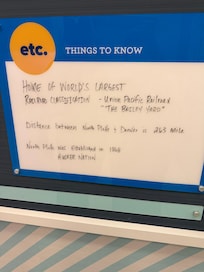 etc.
THINGS TO KNOW
HOME OF WORLD'S LARGEST
RAILROAD CLASSIFICATION - Union Pacific Railroad
"THE BAILEY YARD"
Distance between North Platte & Omaha is 263 Mile
North Platte was ESTABLISHED in 1868